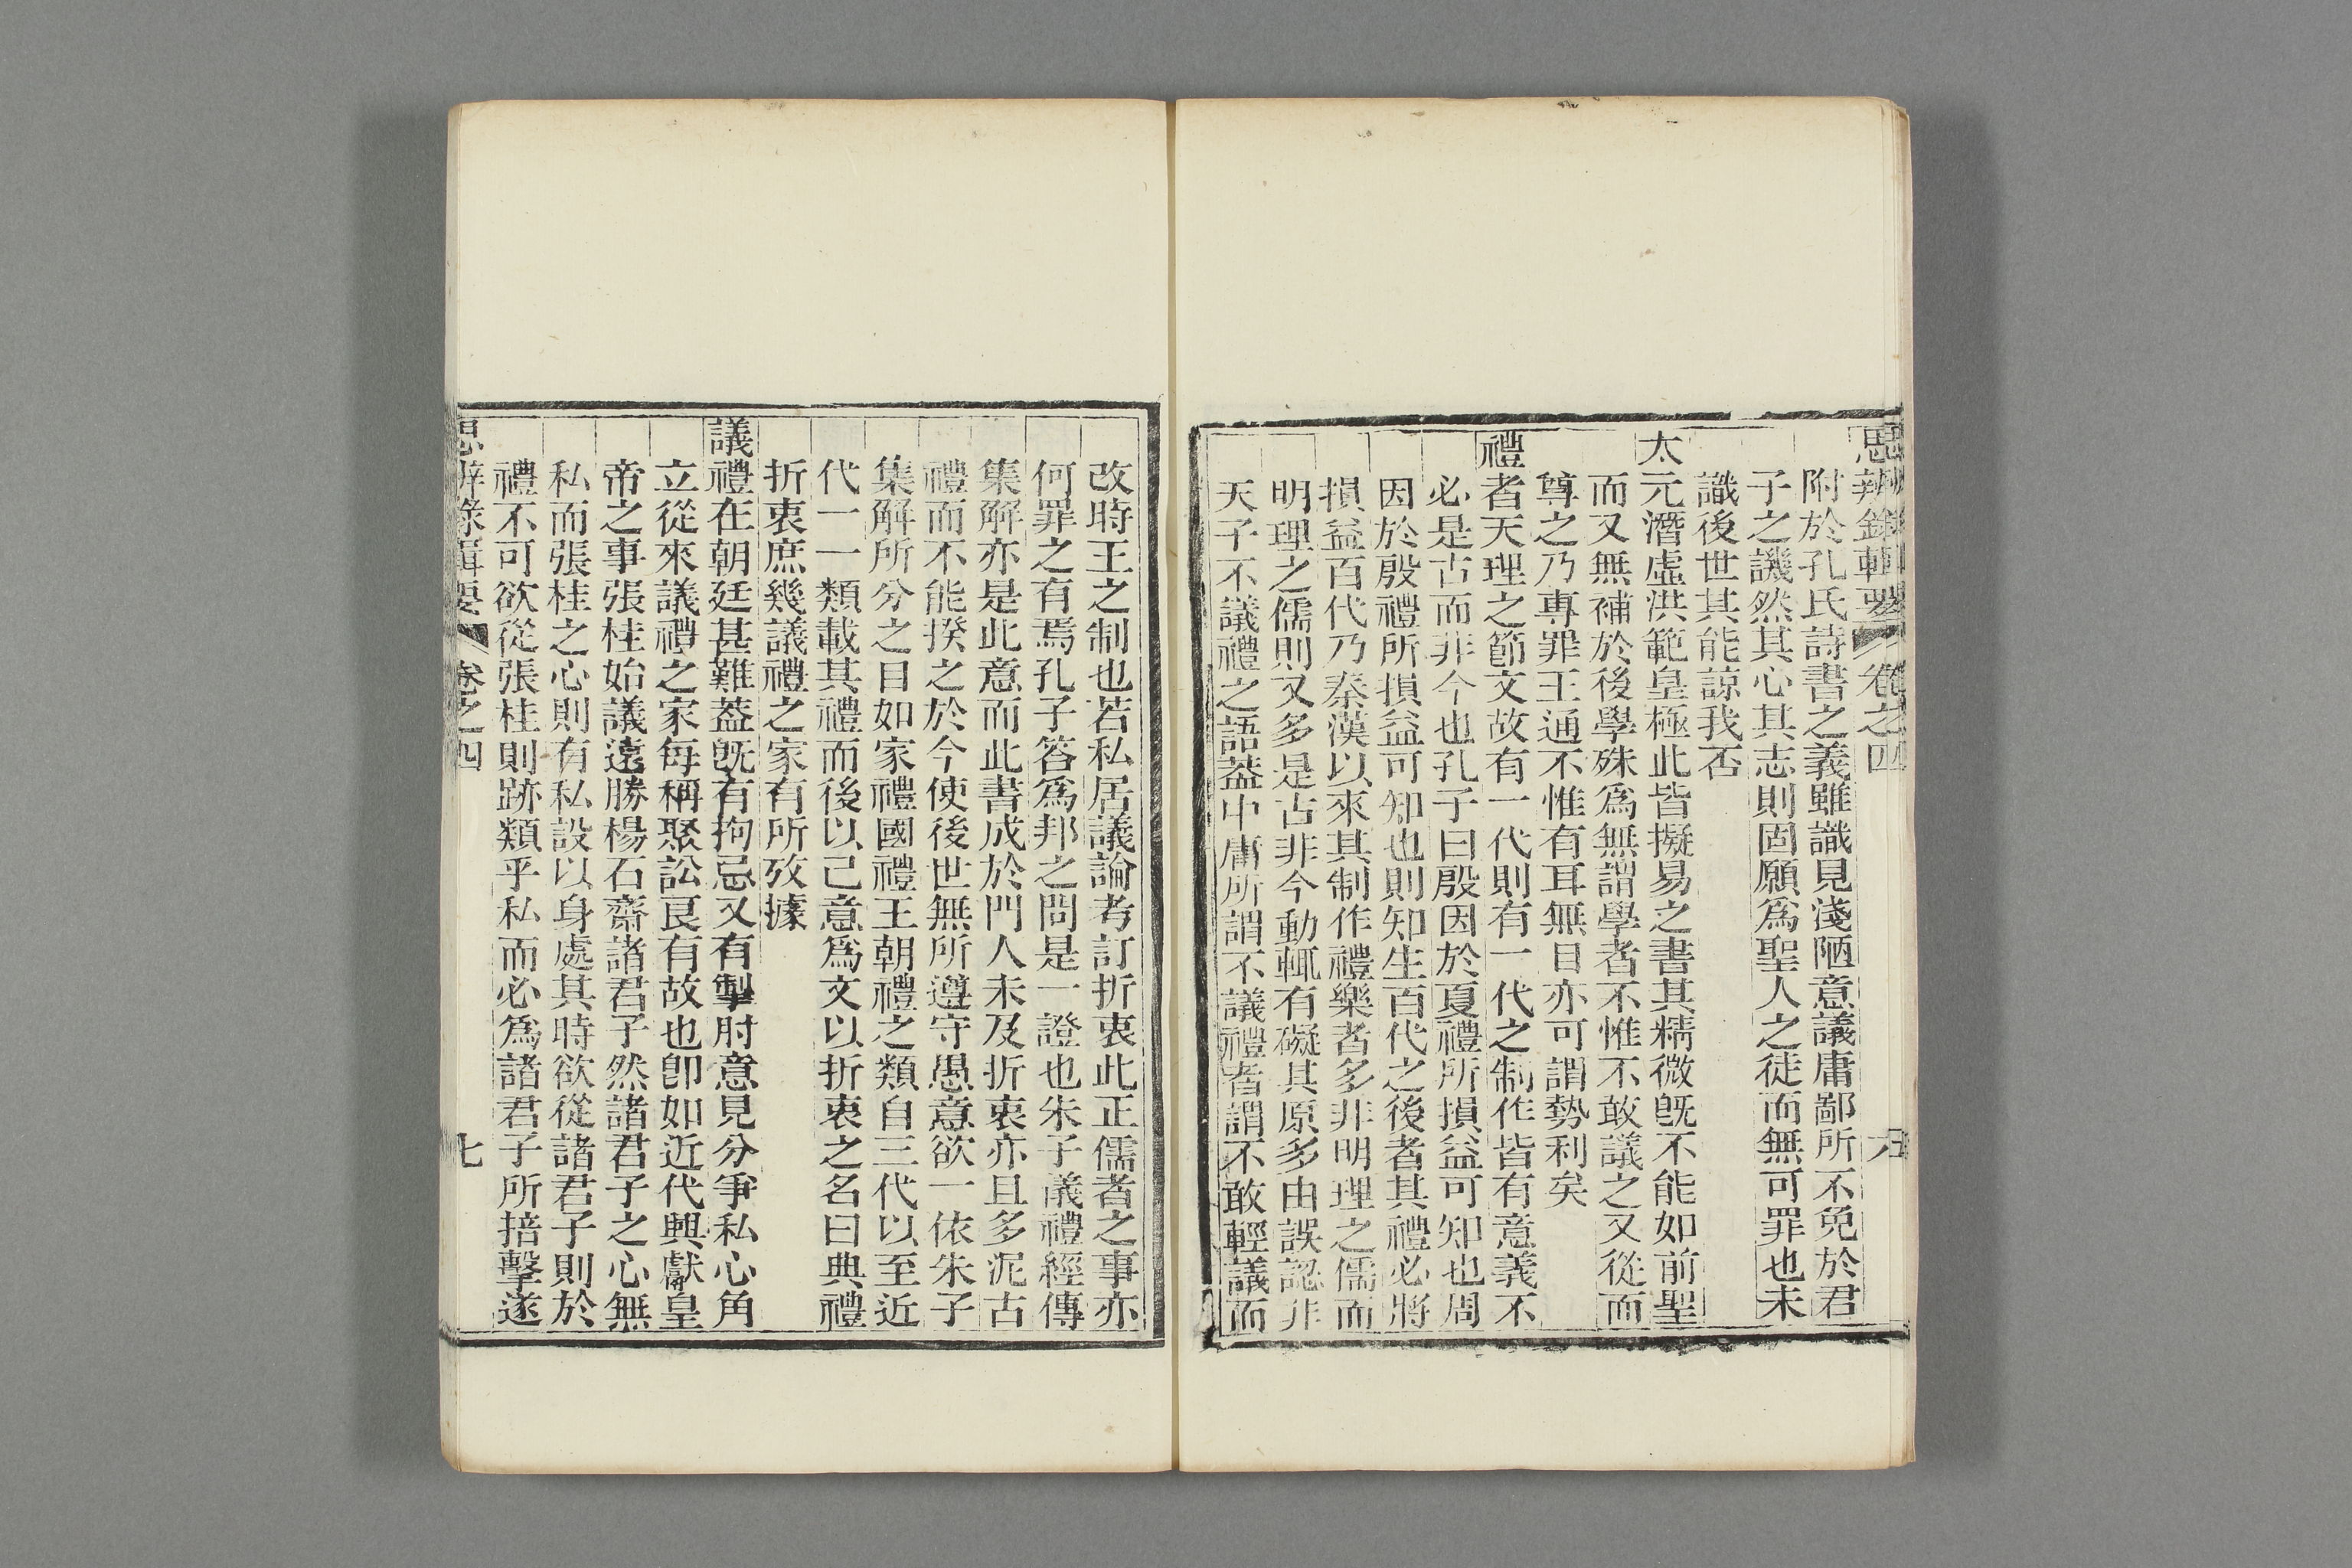 思辨錄輯要 卷之四 六
附於孔氏詩書之義雖識見淺陋意議庸鄙所不免於君
子之譏然其心其志則固願爲聖人之徒而無可罪也未
識後世其能諒我否
太元潛虛洪範皇極此皆擬易之書其精微旣不能如前聖
而又無補於後學殊爲無謂學者不惟不敢議之又從而
尊之乃專罪王通不惟有耳無目亦可謂勢利矣
禮者天理之節文故有一代則有一代之制作皆有意義不
必是古而非今也孔子曰殷因於夏禮所損益可知也周
因於殷禮所損益可知也則知生百代之後者其禮必將
損益百代乃秦漢以來其制作禮樂者多非明理之儒而
明理之儒則又多是古非今動輒有礙其原多由誤認非
天子不議禮之語葢中庸所謂不議禮者謂不敢輕議而
改時王之制也若私居議論考訂折衷此正儒者之事亦
何罪之有焉孔子答爲邦之問是一證也朱子儀禮經傳
集解亦是此意而此書成於門人未及折衷亦且多泥古
禮而不能揆之於今使後世無所遵守愚意欲一依朱子
集解所分之目如家禮國禮王朝禮之類自三代以至近
代一一類載其禮而後以己意爲文以折衷之名曰典禮
折衷庶幾議禮之家有所攷據
議禮在朝廷甚難葢旣有拘忌又有掣肘意見分爭私心角
立從來議禮之家每稱聚訟良有故也卽如近代興獻皇
帝之事張桂始議遠勝楊石齋諸君子然諸君子之心無
私而張桂之心則有私設以身處其時欲從諸君子則於
禮不可欲從張桂則跡類乎私而必爲諸君子所掊擊遂
思辨錄輯要 卷之四 七